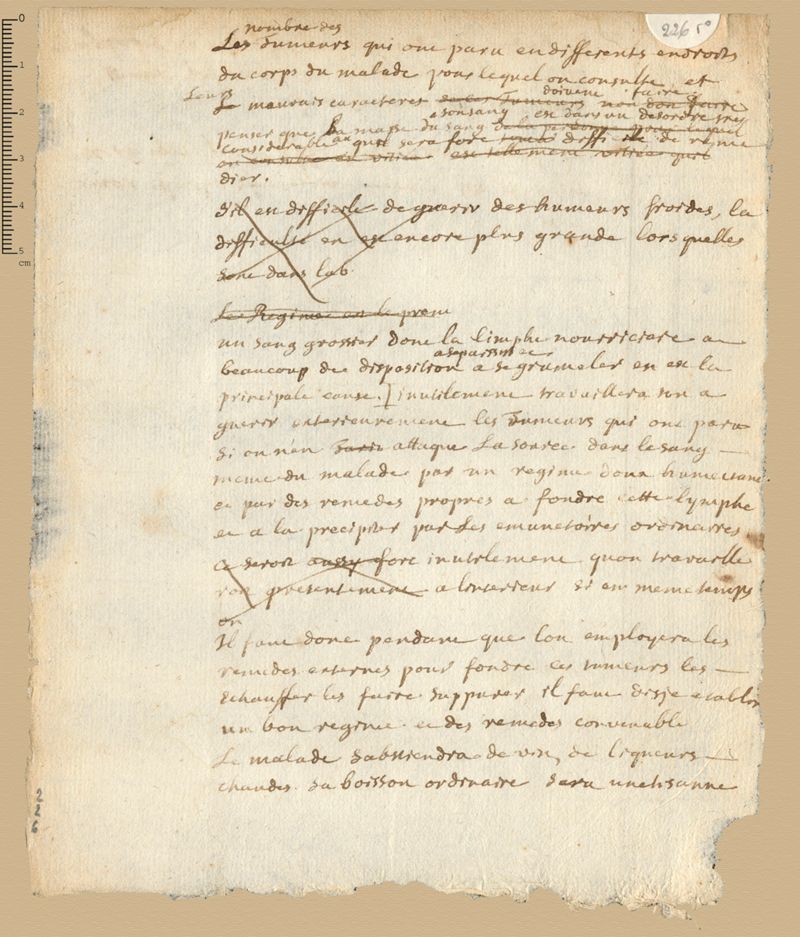 226 r°
nombre des
Les tumeurs qui ont paru en differents endroits
du corps du malade pour lequel on consulte et
Leurs doivent faire
Le mauvais caractere de ces tumeurs non don faire
sonsang est dans un desordre tres
penser que la masse du sang de la personne pour lequel
considerable et quil sera fort difficile de reme
on consulte est vitiee est tellement vitiee quil
dier.
Sil est difficile de guerir des humeurs froides, la
difficulté en est encore plus grande lors quelles
sont dans lab
Le Regime est le prem
un sang grossier dont la limphe nourriciere a
asepaissir et
beaucoup de disposition a se grumeler en est la
principale cause.] inutilement travaillera ton a
guerir exterieurement les tumeurs qui ont paru
si on n'en attaque La source dans le sang
meme du malade par un regime doux humectant
et par des remedes propres a fondre cette lymphe
et a la precipiter par Les emunctoires ordinaires
Ce seroit aussy fort inutilement quon travaille
roit presentement a linterieur si en meme temps
on
Il faut donc pendant que lon employera les
remedes externes pour fondre ces tumeurs les
echauffer les faire suppurer il faut disje etablir
un bon regime et des remedes convenable
Le malade sabstiendra de vin, de liqueurs
chaudes. sa boisson ordinaire sera une tisanne
226
0
1
2
3
4
5
cm